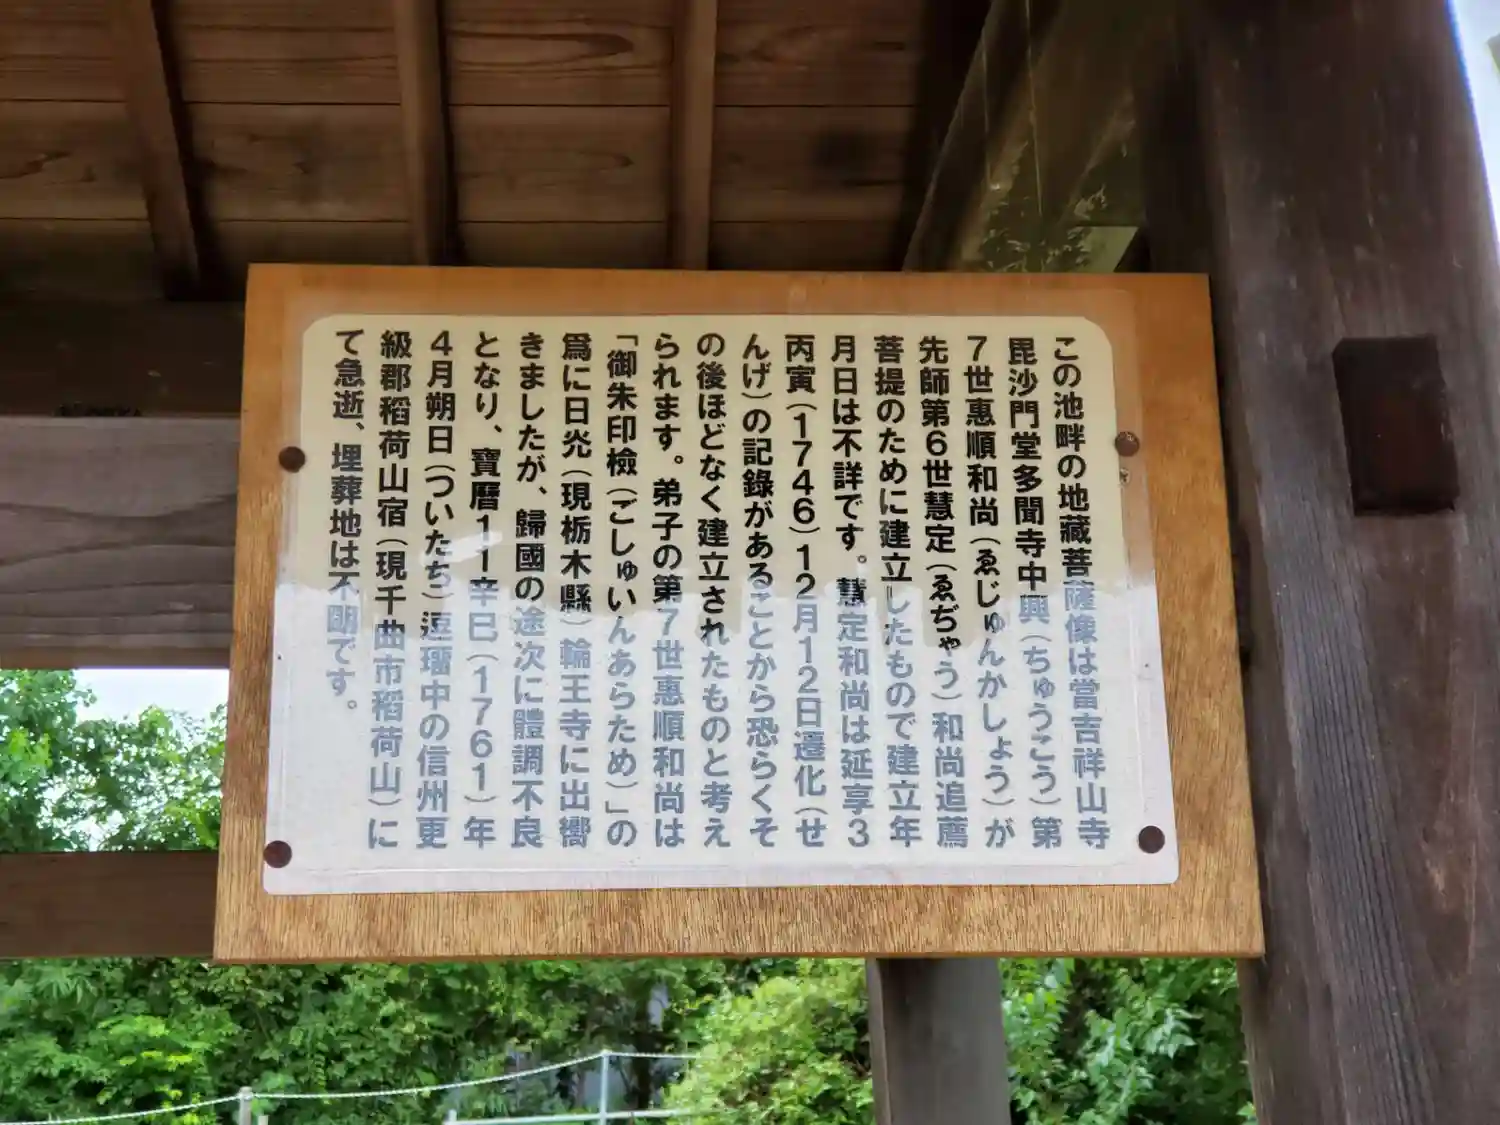 この池畔の地藏菩薩像は當吉祥山寺
毘沙門堂多聞寺中興（ちゅうこう）第
7世惠順和尚（ゑじゅんかしょう）が
先師第6世慧定（ゑぢゃう）和尚追薦
菩提のために建立したもので建立年
月日は不詳です。慧定和尚は延享3
丙寅（1746）12月12日遷化（せ
んげ）の記錄があることから恐らくそ
の後ほどなく建立されたものと考え
られます。弟子の第7世惠順和尚は
「御朱印檢（ごしゅいんあらため）」の
爲に日灮（現栃木縣）輪王寺に出嚮
きましたが、歸國の途次に體調不良
となり、寶曆11辛巳（1761）年
4月朔日（ついたち）逗瑠中の信州更
級郡稻荷山宿（現千曲市稻荷山）に
て急逝、埋葬地は不朙です。